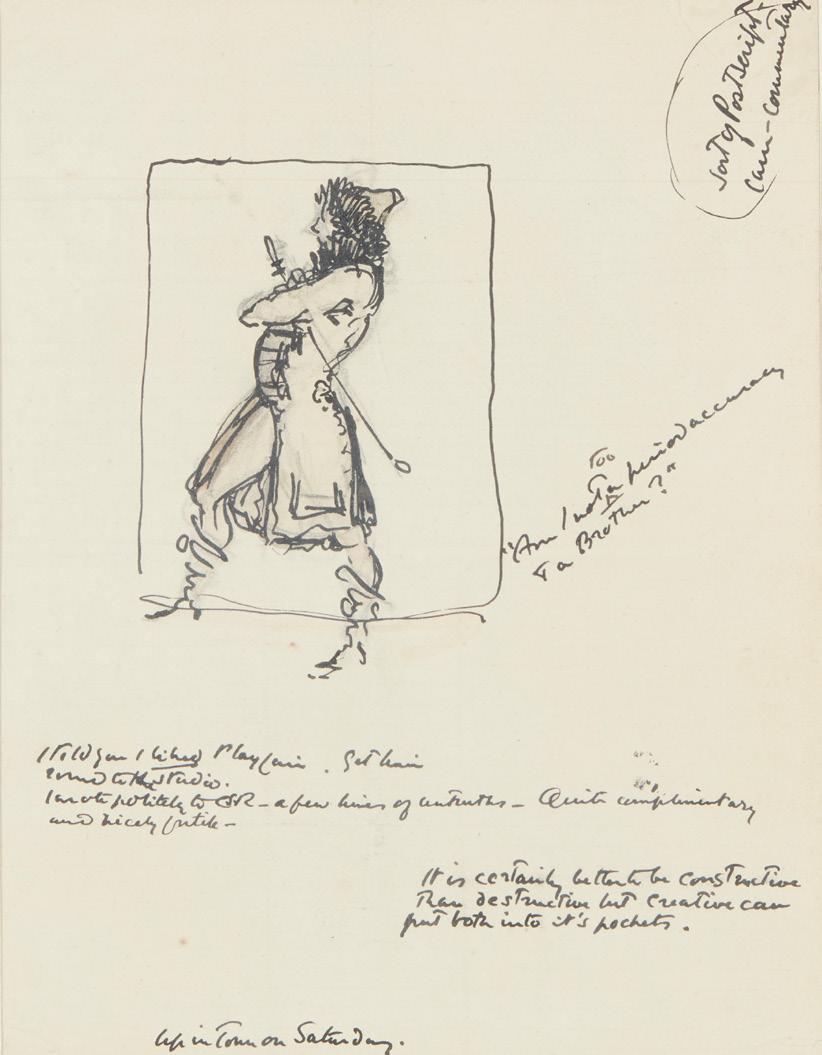 Sort of Postscript
Cum-Commentary
Too
"Am I not a period accuracy
& a Brother?"
I told you I liked Playfair. Get him
round to the studio.
I wrote politely to CBR – a few lines of untruths – Quite complimentary
and nicely futile –
It is certainly better to be constructive
than destructive but Creative can
put both into it's pockets.
Up in Town on Saturday.